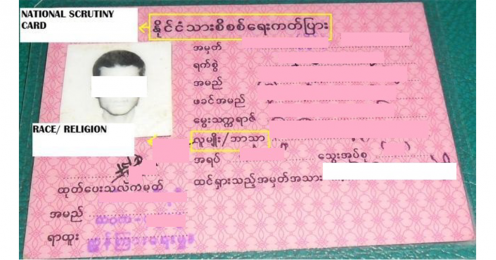 NATIONAL SCRUTINY
CARD
နိုင်ငံသားစိစစ်ရေးကတ်ပြား
အမှတ်
ရက်စွဲ
အမည်
ဖခင်အမည်
မွေးသက္ကရာဇ်
လူမျိုး/ဘာသာ
RACE/ RELIGION
အရပ် သွေးအုပ်စု
ထင်ရှားသည့်အမှတ်အသား
ထုတ်ပေးသူလက်မှတ်
အမည်
ရာထူး